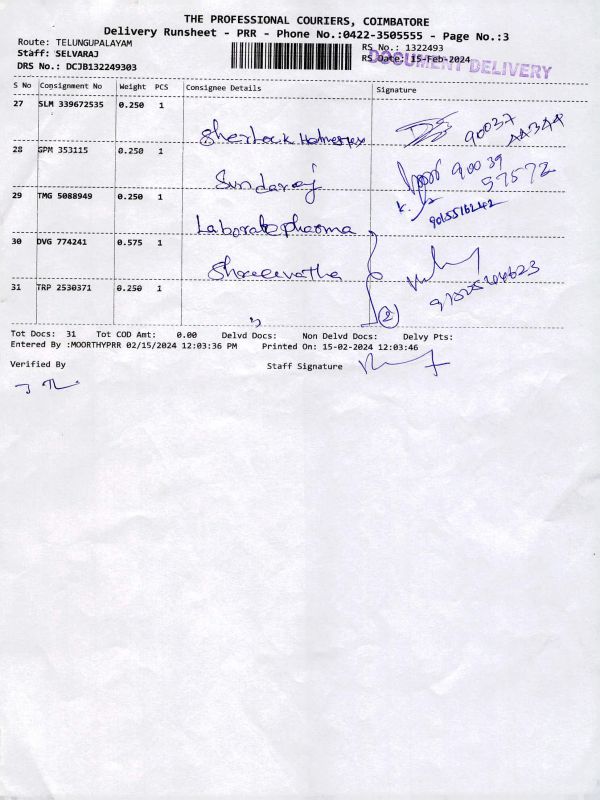 THE PROFESSIONAL COURIERS, COIMBATORE
Delivery Runsheet - PRR - Phone No.:0422-3505555 - Page No.:3
Route: TELUNGUPALAYAM
Staff: SELVARAJ
DRS No.: DCJB132249303
RS No.: 1322493
RS Date: 15-Feb-2024
DOCUMENT DELIVERY
S No Consignment No Weight PCS Consignee Details Signature
27 SLM 339672535 0.250 1
Sherlock 90037
28 GPM 353115 0.250 1
Sundaraj 90039
57572
29 TMG 5088949 0.250 1
Laborate pharma
30 DVG 774241 0.575 1
31 TRP 2530371 0.250 1
2
Tot Docs: 31 Tot COD Amt: 0.00 Delvd Docs: Non Delvd Docs: Delvy Pts:
Entered By :MOORTHYPRR 02/15/2024 12:03:36 PM Printed On: 15-02-2024 12:03:46
Verified By Staff Signature